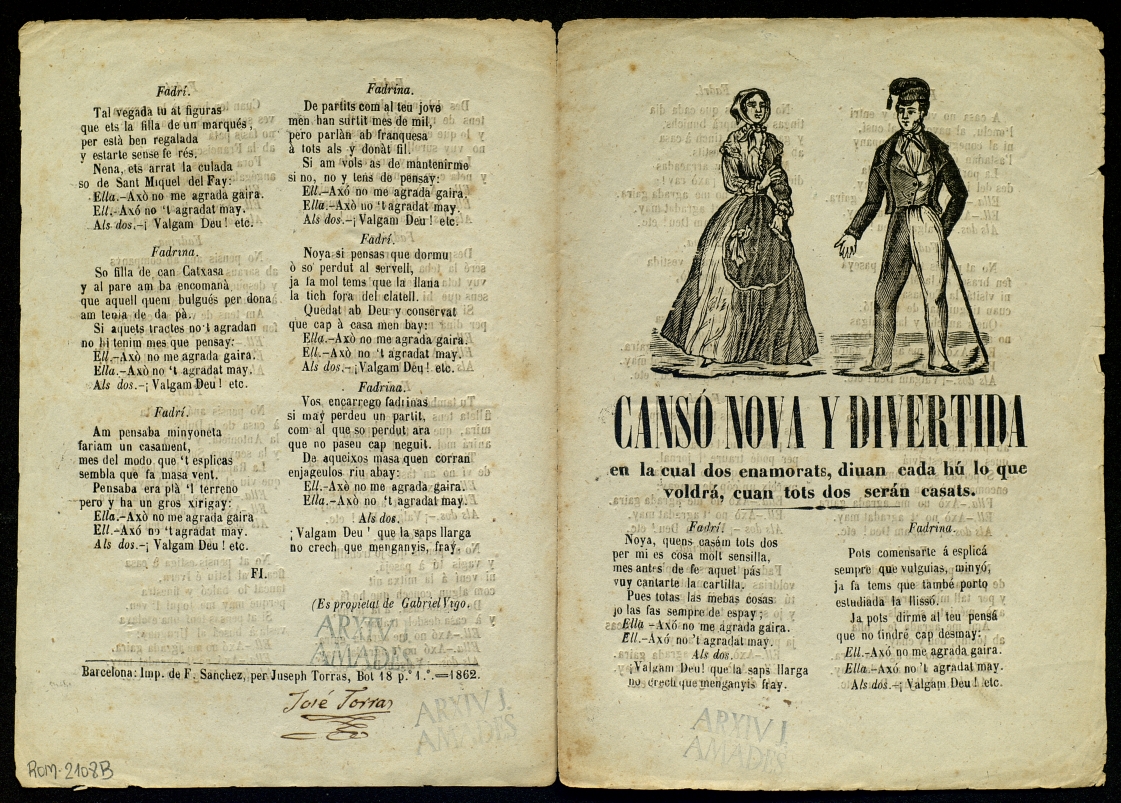 Fadrí.
Tal vegada tu at figuras
que ets la filla de un marqués,
per está ben regalada
y estarte sense fe rés.
Nena, ets arrat la culada
so de Sant Miquel del Fay:
Ella.-Axò no me agrada gaira.
Ell.-Axó no 't agradat may.
Als dos.-¡ Valgam Deu! etc.
Fadrina.
So filla de can Catxasa
y al pare am ba encomaná
que aquell quem bulgués per dona
am tenia de da pà.
Si aquets tractes no't agradan
no hi tenim mes que pensay:
Ell.-Axò no me agrada gaira.
Ella.-Axò no 't agradat may.
Als dos.-¡ Valgam Deu! etc.
Fadrí.
Am pensaba minyoneta
fariam un casament,
mes del modo que 't esplicas
sembla que fa masa vent.
Pensaba era plà 'l terreno
pero y ha un gros xirigay:
Ella.-Axò no me agrada gaira
Ell.-Axó no 't agradat may.
Als dos.-¡ Valgam Deu! etc.
Fadrina.
De partits com al teu jove
men han surtit mes de mil,
pero parlàn ab franquesa
à tots als y donàt fil.
Si am vols as de mantenirme
si no, no y tens de pensay:
Ell.-Axó no me agrada gaira.
Ella.-Axò no 't agradat may.
Als dos.-¡ Valgam Deu! etc.
Fadrí.
Noya si pensas que dormu
ò so perdut al servell,
ja fa mol tems que la llana
la tich fora del clatell.
Quedat ab Deu y conservat
que cap à casa men bay:
Ella.-Axò no me agrada gaira.
Ell.-Axò no 't agradat may.
Als dos.-¡Valgam Deu! etc.
Fadrina.
Vos encarrego fadrinas
si may perdeu un partit,
com al que so perdut ara
que no paseu cap neguit.
De aqueixos masa quen corran
enjageulos riu abay:
Ell.-Axò no me agrada gaira.
Ella.-Axò no 't agradat may.
Als dos.
¡Valgam Deu! que la saps llarga
no crech que menganyis, fray.
FI.
(Es propietat de Gabriel Vigo.
ARXIV J.
AMADES
Barcelona: Imp. de F. Sanchez, per Juseph Torras, Bot 18 p.º 1.º.=1862.
José Torras
ARXIV J.
AMADES
ROM-2108B
CANSÓ NOVA Y DIVERTIDA
en la cual dos enamorats, diuan cada hú lo que
voldrá, cuan tots dos serán casats.
Fadrí.
Noya, quens casém tots dos
per mi es cosa molt sensilla,
mes antes de fe aquet pás
vuy cantarte la cartilla.
Pues totas las mebas cosas
jo las fas sempre de espay;
Ella.-Axó no me agrada gaira.
Ell.-Axó no't agradat may.
Als dos.
¡Valgam Deu! que la saps llarga
no crech que menganyis fray.
Fadrina.
Pots comensarte á esplicá
sempre que vulguias, minyó,
ja fa tems que també porto
estudiada la llissó.
Ja pots dirme al teu pensá
que no tindré cap desmay:
Ell.-Axó no me agrada gaira.
Ella.-Axó no't agradat may.
Als dos.-¡Valgam Deu! etc.
ARXIV J.
AMADES